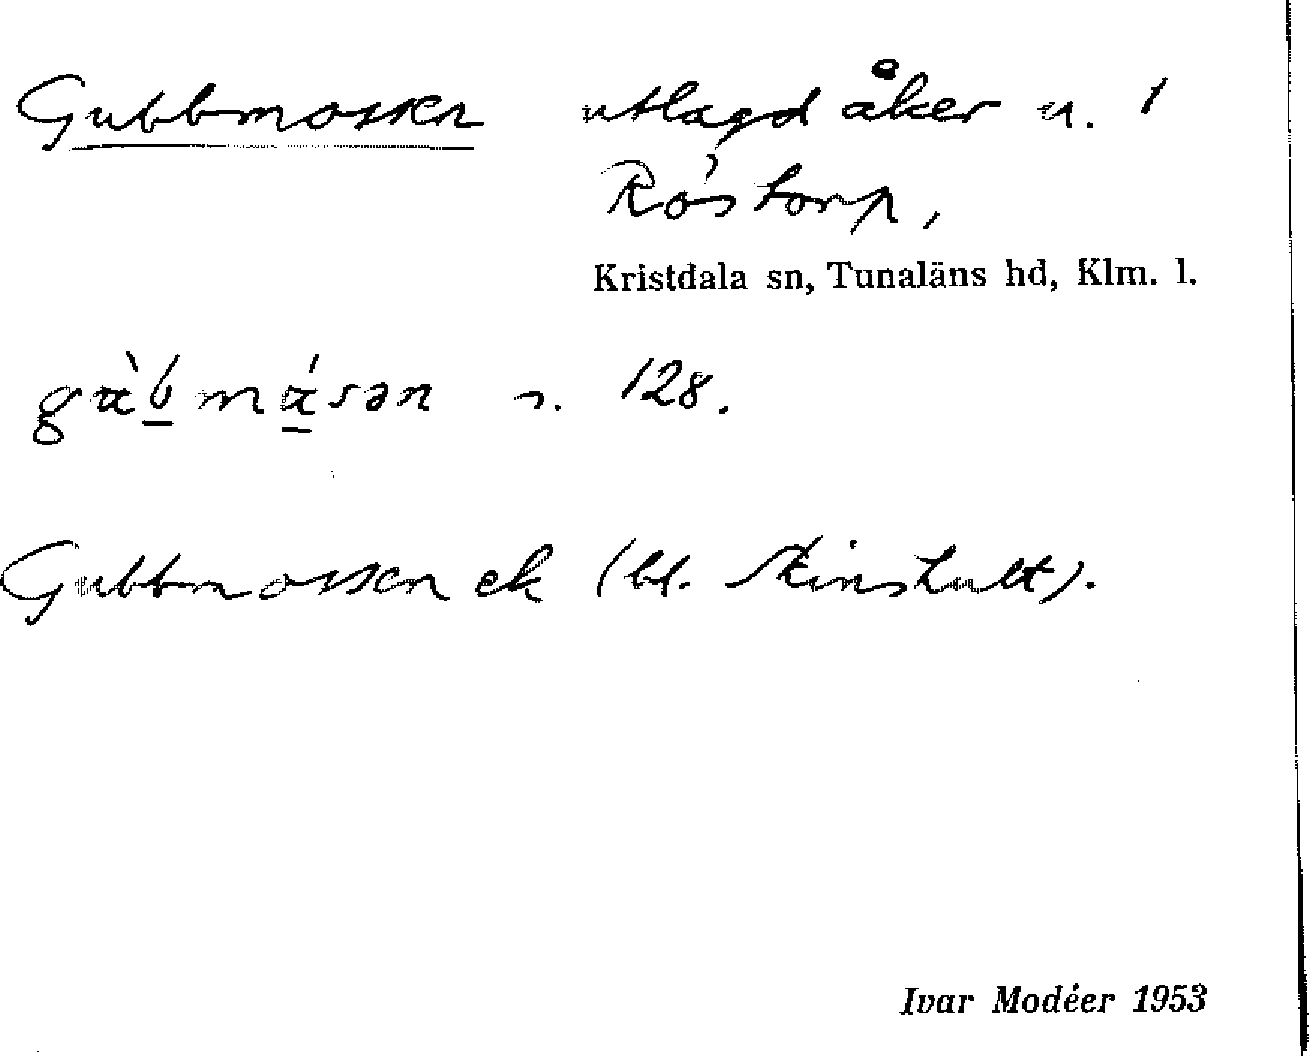 Gubbmossen utlagd åker u. 1
Röstorp,
Kristdala sn, Tunaläns hd, Klm. l.
s. 128.
Gubbmossen ek (bl.
Ivar Modéer 1953